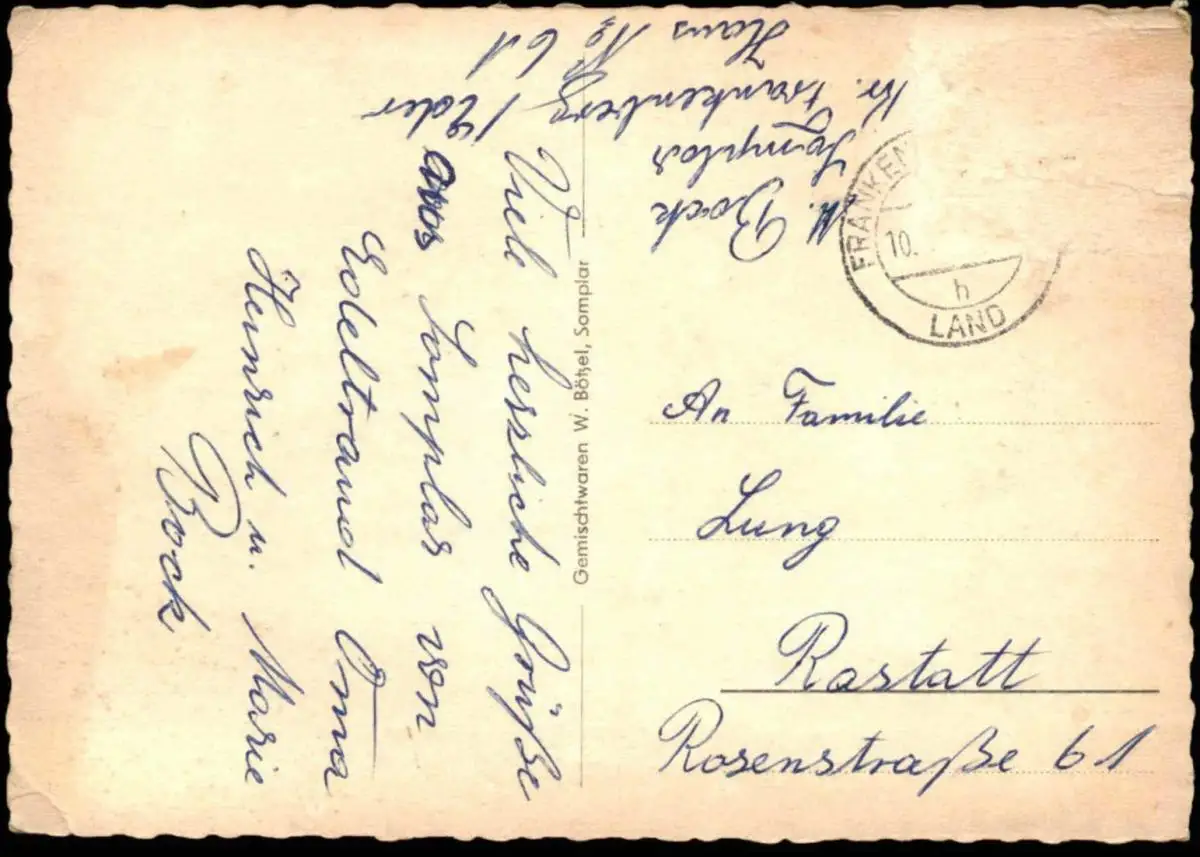 M. Bock
Somplar
Kr. Frankenberg / Eder
Haus No 61
Viele hessliche Grüße
aus Somplar von
Edeltraud Oma
Heinrich u. Marie
Bock
Gemischtwaren W. Bötzel, Somplar
FRANKEN
10.
h
LAND
An Familie
Lung
Rastatt
Rosenstraße 61